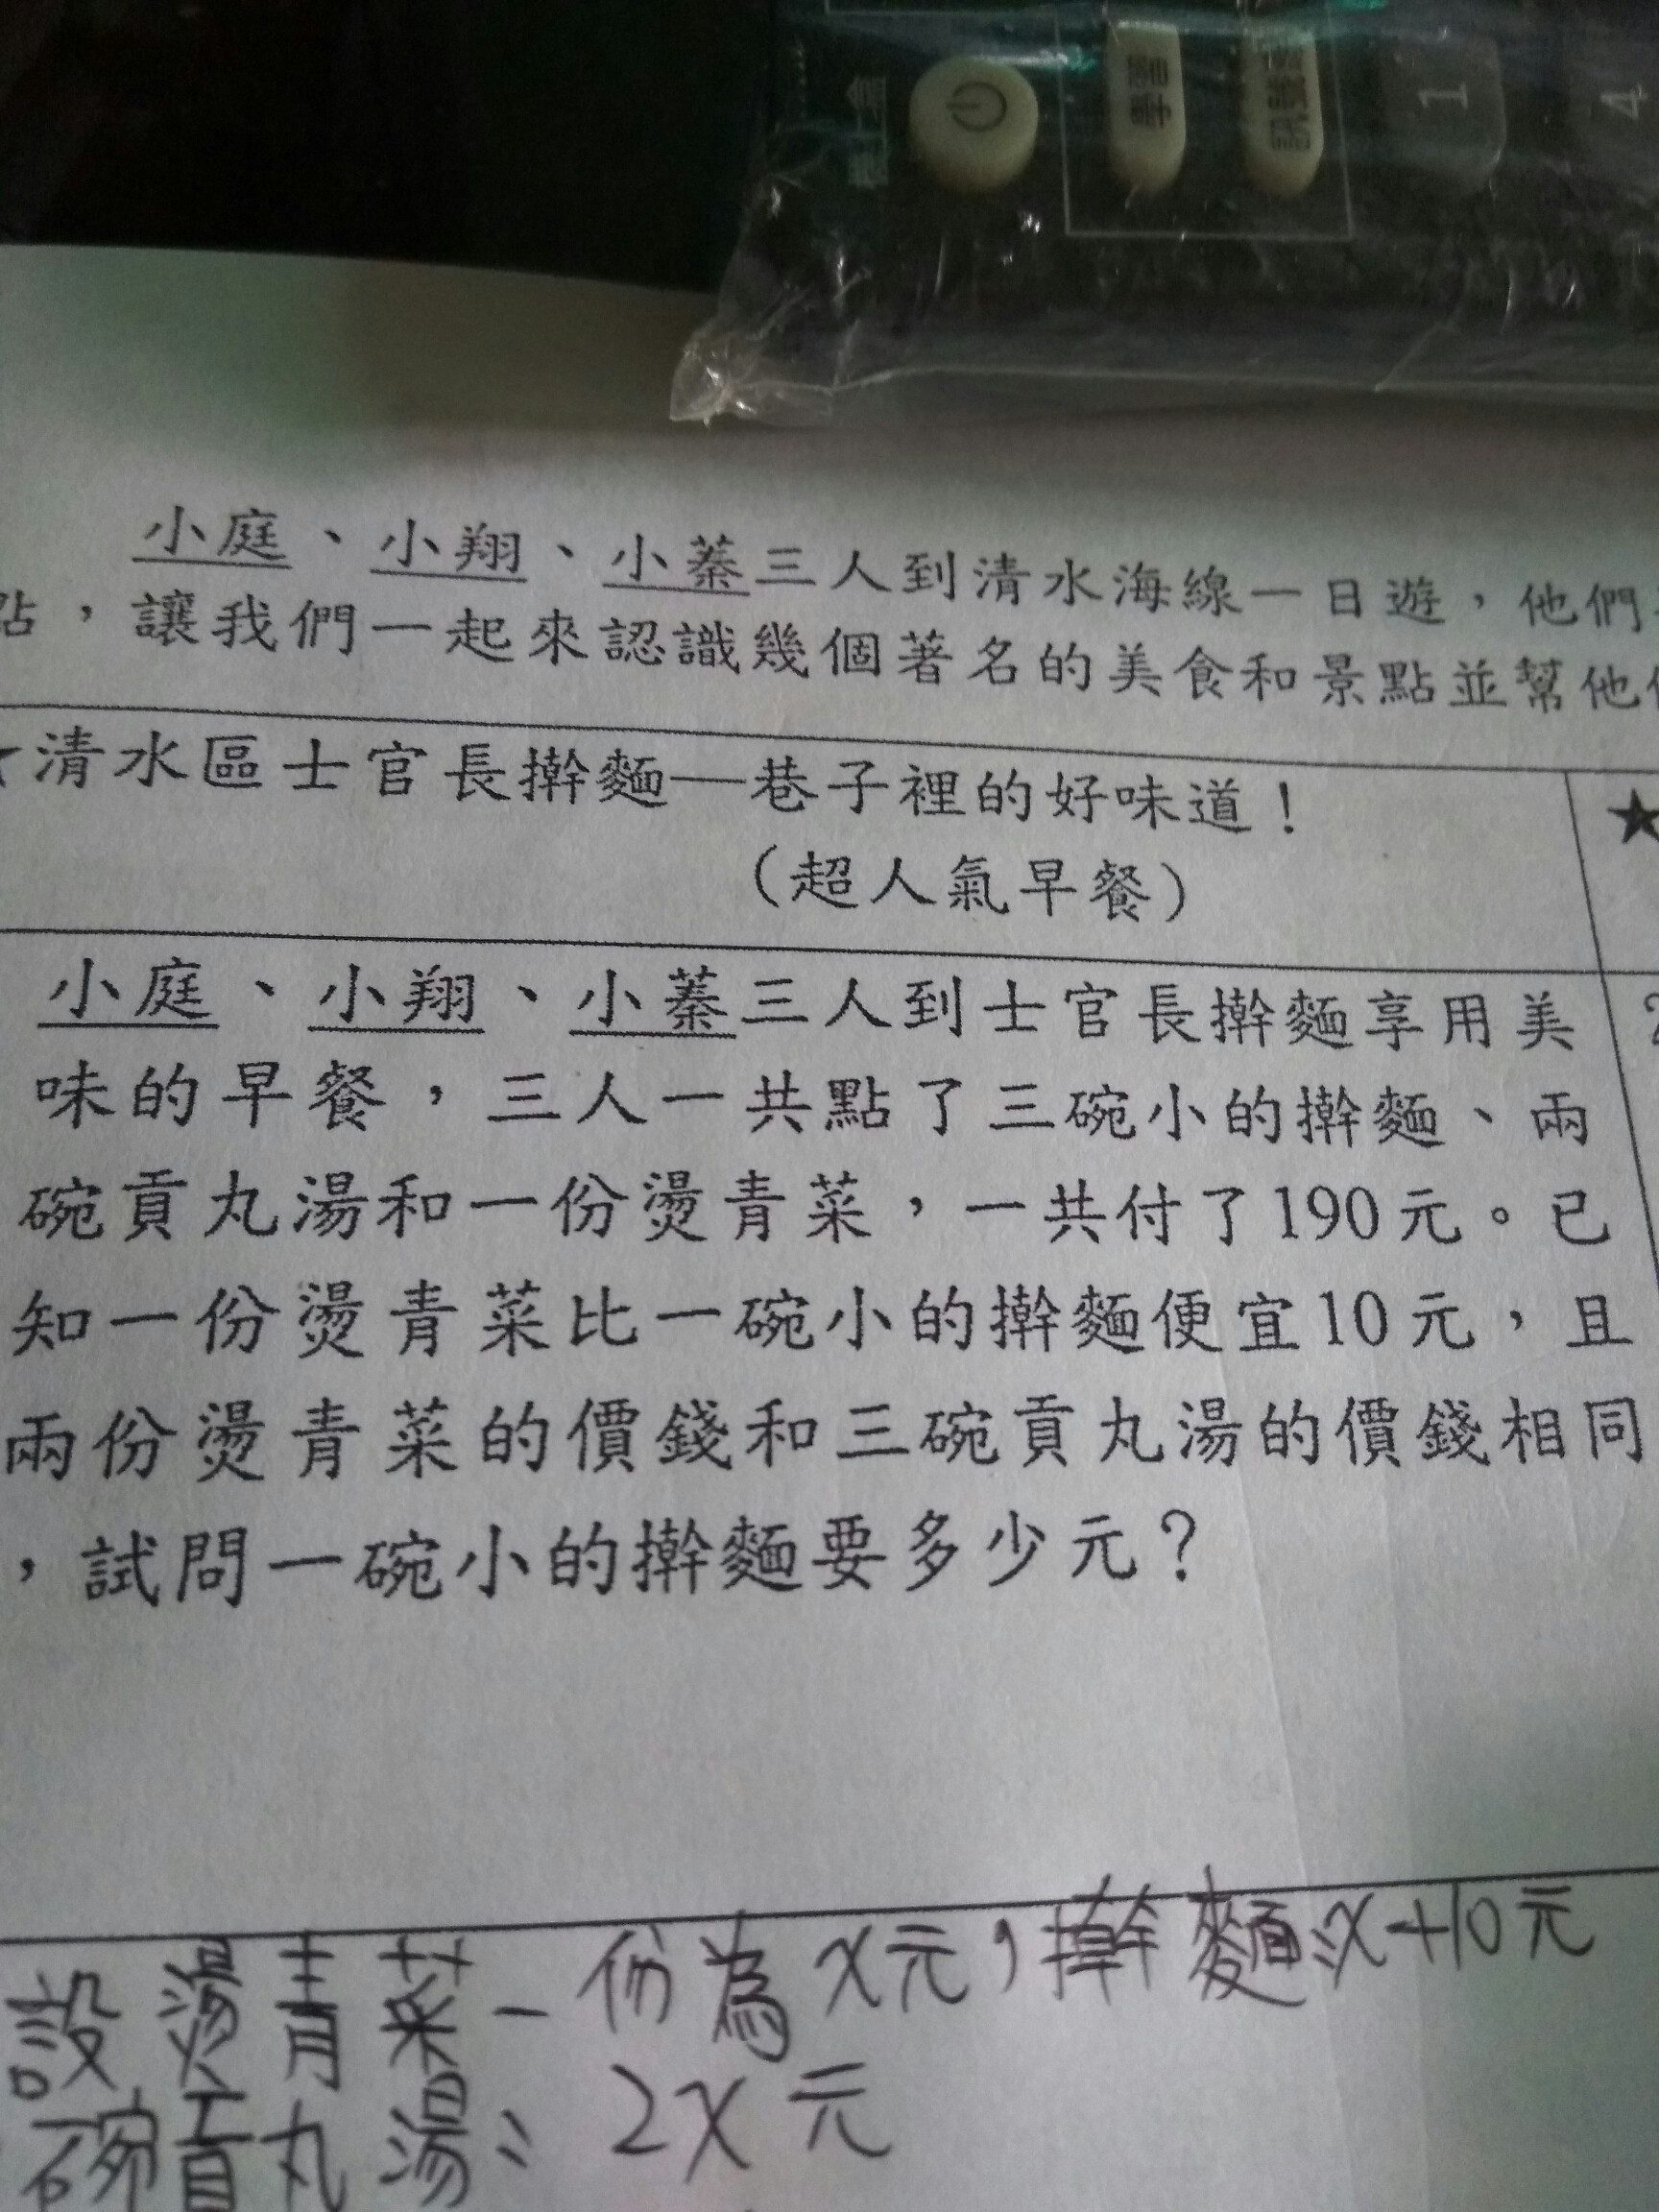 1
4
小庭、小翔、小蓁三人到清水海線一日遊，他們
點，讓我們一起來認識幾個著名的美食和景點並幫他
★清水區士官長擀麵—巷子裡的好味道！
★
（超人氣早餐）
小庭、小翔、小蓁三人到士官長擀麵享用美
味的早餐，三人一共點了三碗小的擀麵、兩
碗貢丸湯和一份燙青菜，一共付了190元。已
知一份燙青菜比一碗小的擀麵便宜10元，且
兩份燙青菜的價錢和三碗貢丸湯的價錢相同
，試問一碗小的擀麵要多少元？
設燙青菜一份為x元，擀麵：x+10元
碗貢丸湯：2x元